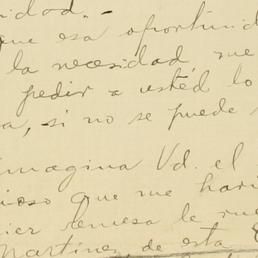 nidad. -
que esa oportunid
la necesidad, me
pedir a usted lo
a, si no se puede
imagina Vd. el
ioso que me harí
ier remesa le rue
Martinez, de esta